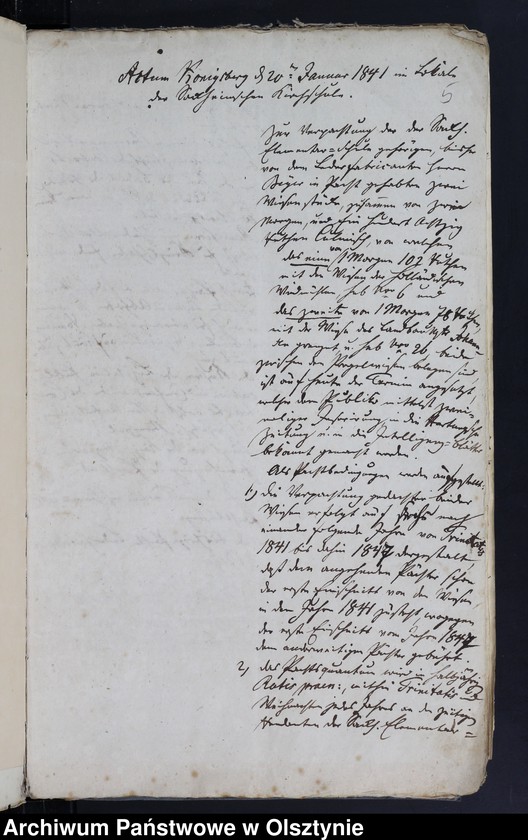 Actum Königsberg d 20t Januar 1841 im Lokale
der Sackheimschen Kirchschule.
5
Zur Verpachtung der der Sackh.
Elementar-Schule gehörigen, bisher
von dem Lederfabricanten Herrn
in Pacht gehabten zwei
Wiesenstücke, zusammen von zwei
Morgen, und Ein Hundert Achtzig
Ruthen Culmisch, von welchen
das eine von 1 Morgen 102 Ruthen
mit den Wiesen der Holländschen
Windmühlen, sub Nro 6 und
das zweite von 1 Morgen 78 Ruthen,
mit der Wiese des
grenzet u. sub Nro 26, beide
zwischen den belegen sind
ist auf heute der Termin angesetzt
welcher dem Publiko mittelst zwei-
maliger Inserirung in die Hartungsche
Zeitung u. in die Intelligenz-Blätter
bekannt gemacht worden.
Als Pachtbedingungen werden aufgestellt:
1) die Verpachtung gedachter beider
Wiesen erfolgt auf Sechs nach
einander folgende Jahre von Trinitatis
1841 bis dahin 1847 dergestalt,
daß dem angehenden Pächter schon
der erste Einschnitt von den Wiesen
in dem Jahre 1841 zusteht, wogegen
der erste Einschnitt vom Jahre 1847
dem anderweitigen Pächter gebührt
2) das Pachtquantum wird in halbjährigen
Ratis praen:, mithin Trinitatis und
Weihnachten jedes Jahres an den zeitigen
Rendanten der Sackh. Elementar-
Archiwum Państwowe w Olsztynie